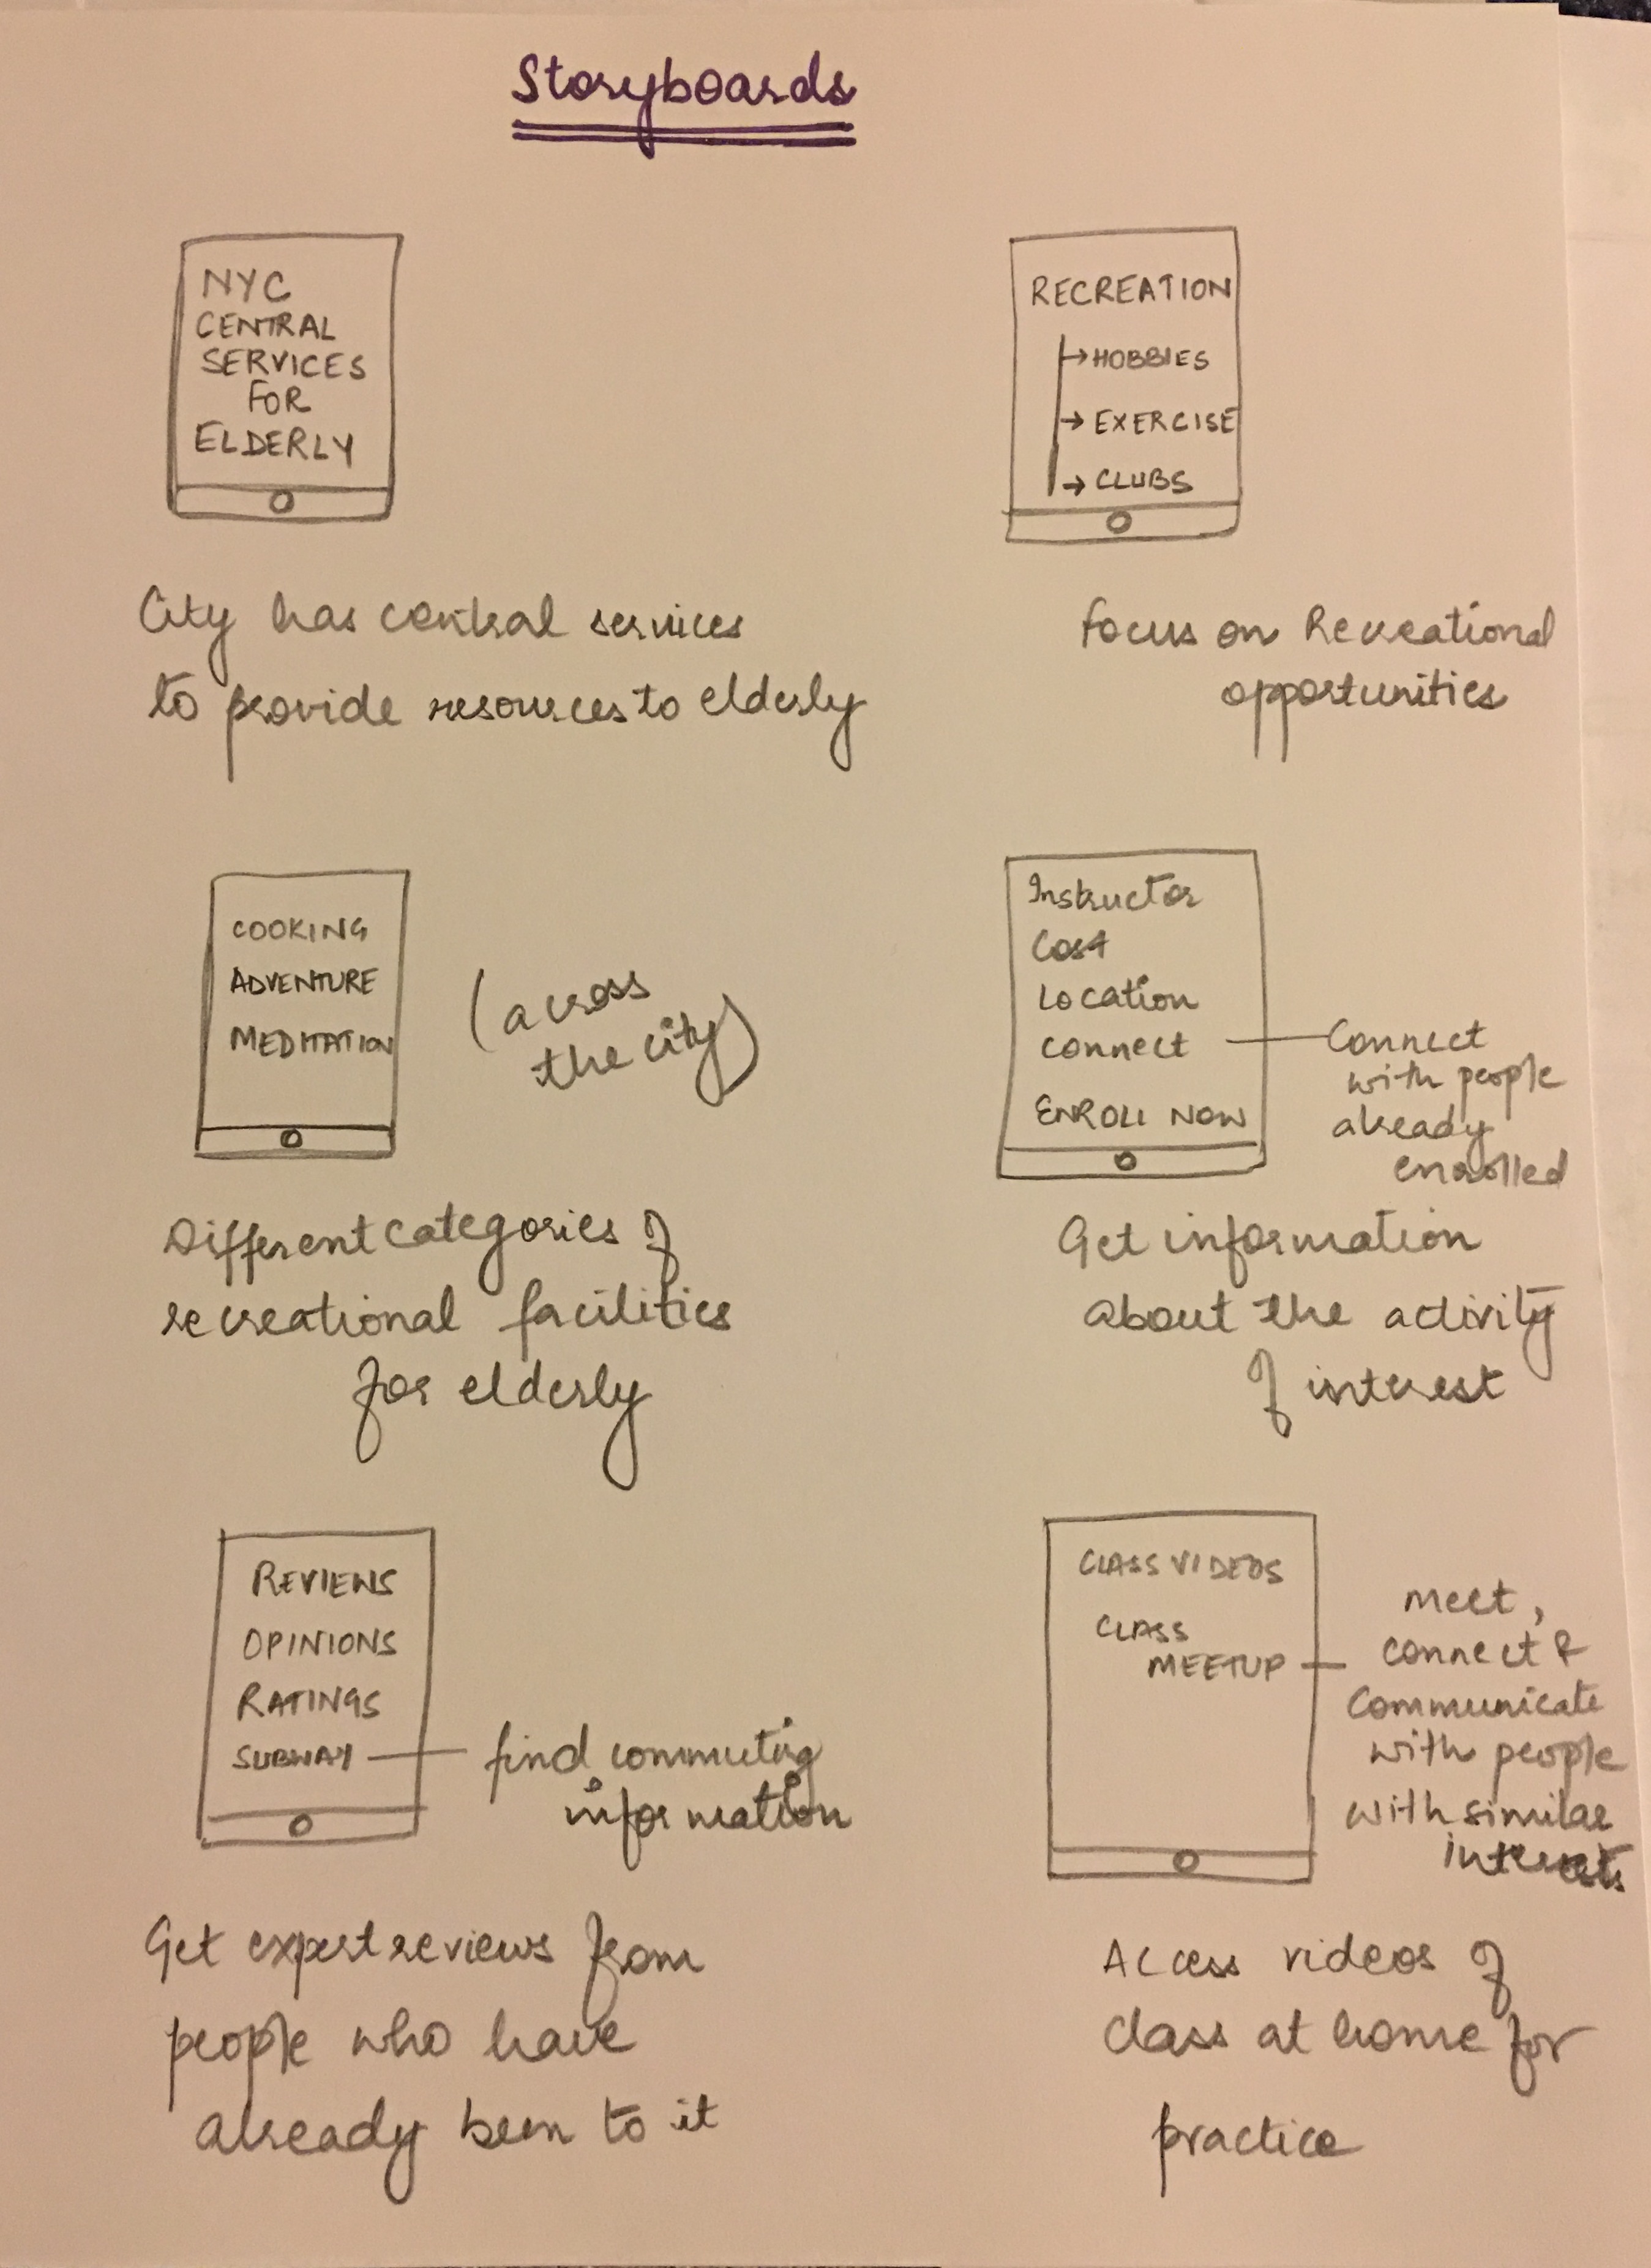 Storyboards
NYC
CENTRAL
SERVICES
FOR
ELDERLY
City has central services
to provide resources to elderly
RECREATION
→ HOBBIES
→ EXERCISE
→ CLUBS
Focus on Recreational
opportunities
COOKING
ADVENTURE
MEDITATION
(across
the city)
Different categories of
recreational facilities
for elderly
Instructor
Cost
Location
connect
ENROLL NOW
Connect
with people
already
enrolled
Get information
about the activity
of interest
REVIEWS
OPINIONS
RATINGS
SUBWAY
find commuting
information
Get expert reviews from
people who have
already been to it
CLASS VIDEOS
CLASS
MEETUP
Meet,
connect &
Communicate
with people
with similar
interests
Access videos of
class at home for
practice